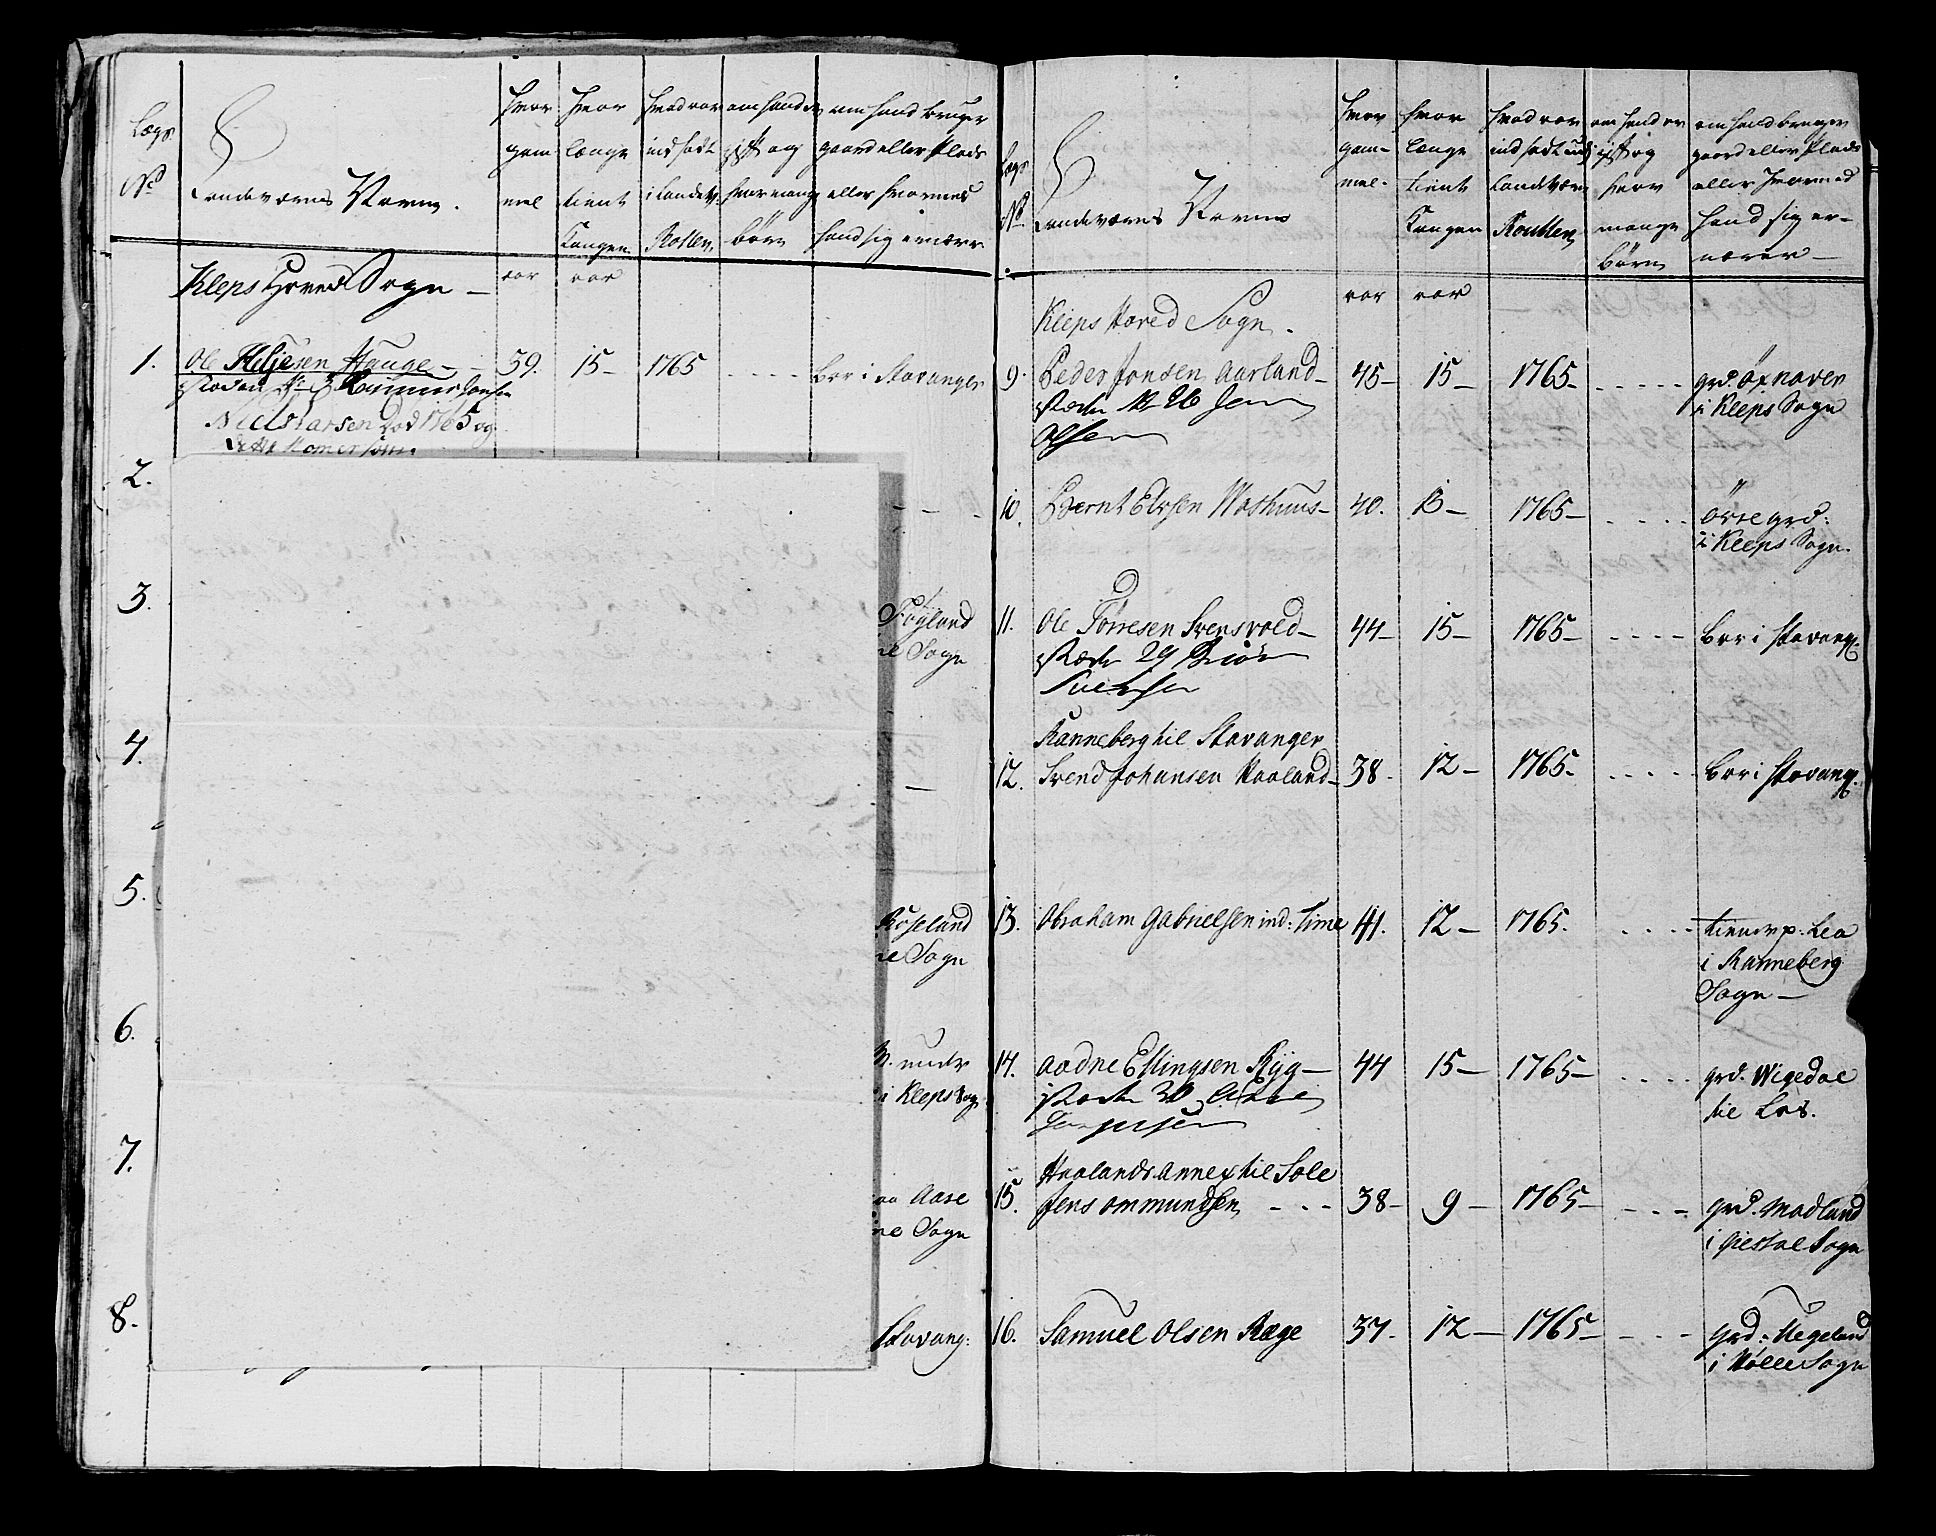 Lægs
No
Landeværns Navn.
Hvor
gam
mel
Hvor
længe
tient
Kongen
hvad aar
indsadt
i Landev.
Rollen,
om hand er
gift og
hvor mange
børn
om hand bruger
gaard eller Plads
eller hvormed
hand sig ernærer
Kleps Hoved Sogn –
aar
aar
1.
Ole Hauge – 39. 15 – 1765 - - - - Bor i Stavanger
Nielsarsen Død 1765 og
2.
3.
Føyland
ne Sogn
4.
5.
Røseland
ne Sogn
6.
under
i Kleps Sog
7.
aa Aase
ne Sogn
8.
Stavang:
Lægs
No
Landeværns Navn
Hvor
gam-
mel-
hvor
længe
tient
Kongen
hvad aar
indsadt udi
Landværn
Roullen,
om hand er
gift og
hvor
mange
børn
om hand bruger
gaard eller Plads
eller hvormed
hand sig er-
nærer –
aar
aar
Kleps Hoved Sogn.
9. Peder Jonsen Aarland – 45 – 15 – 1765 - - - - - grd. Øxnaver
i Kleps Sogn
No 26
Olsen
10. Bernt Elvsen Washuus – 40. 13 – 1765 – - - - - Orregrd:
i Kleps Sogn.
11. Ole Tørresen Svensvold – 44 – 15 – 1765 – - - - - Bor i Stavang:
29
Svensen
Ranneberg til Stavanger
12. Svend Johansen Haaland – 38. 12 – 1765. - - - - Bor i Stavang:
13. Abraham Gabrielsen ind: Time 41. 12 – 1765. - - - - Lea
i Ranneberg
Sogn –
14. Aadne Ellingsen Ryg – 44 15 – 1765 – - - - - grd. Wigedal
til
30
15. Haalands Annex til Sole
Jens Ommundsen - - - 38 – 9 – 1765 – - - - grd. Madland
i Giestal Sogn
16. Samuel Olsen Ræge 37. 12 – 1765 – - - - grd: Hegeland
i Sogn